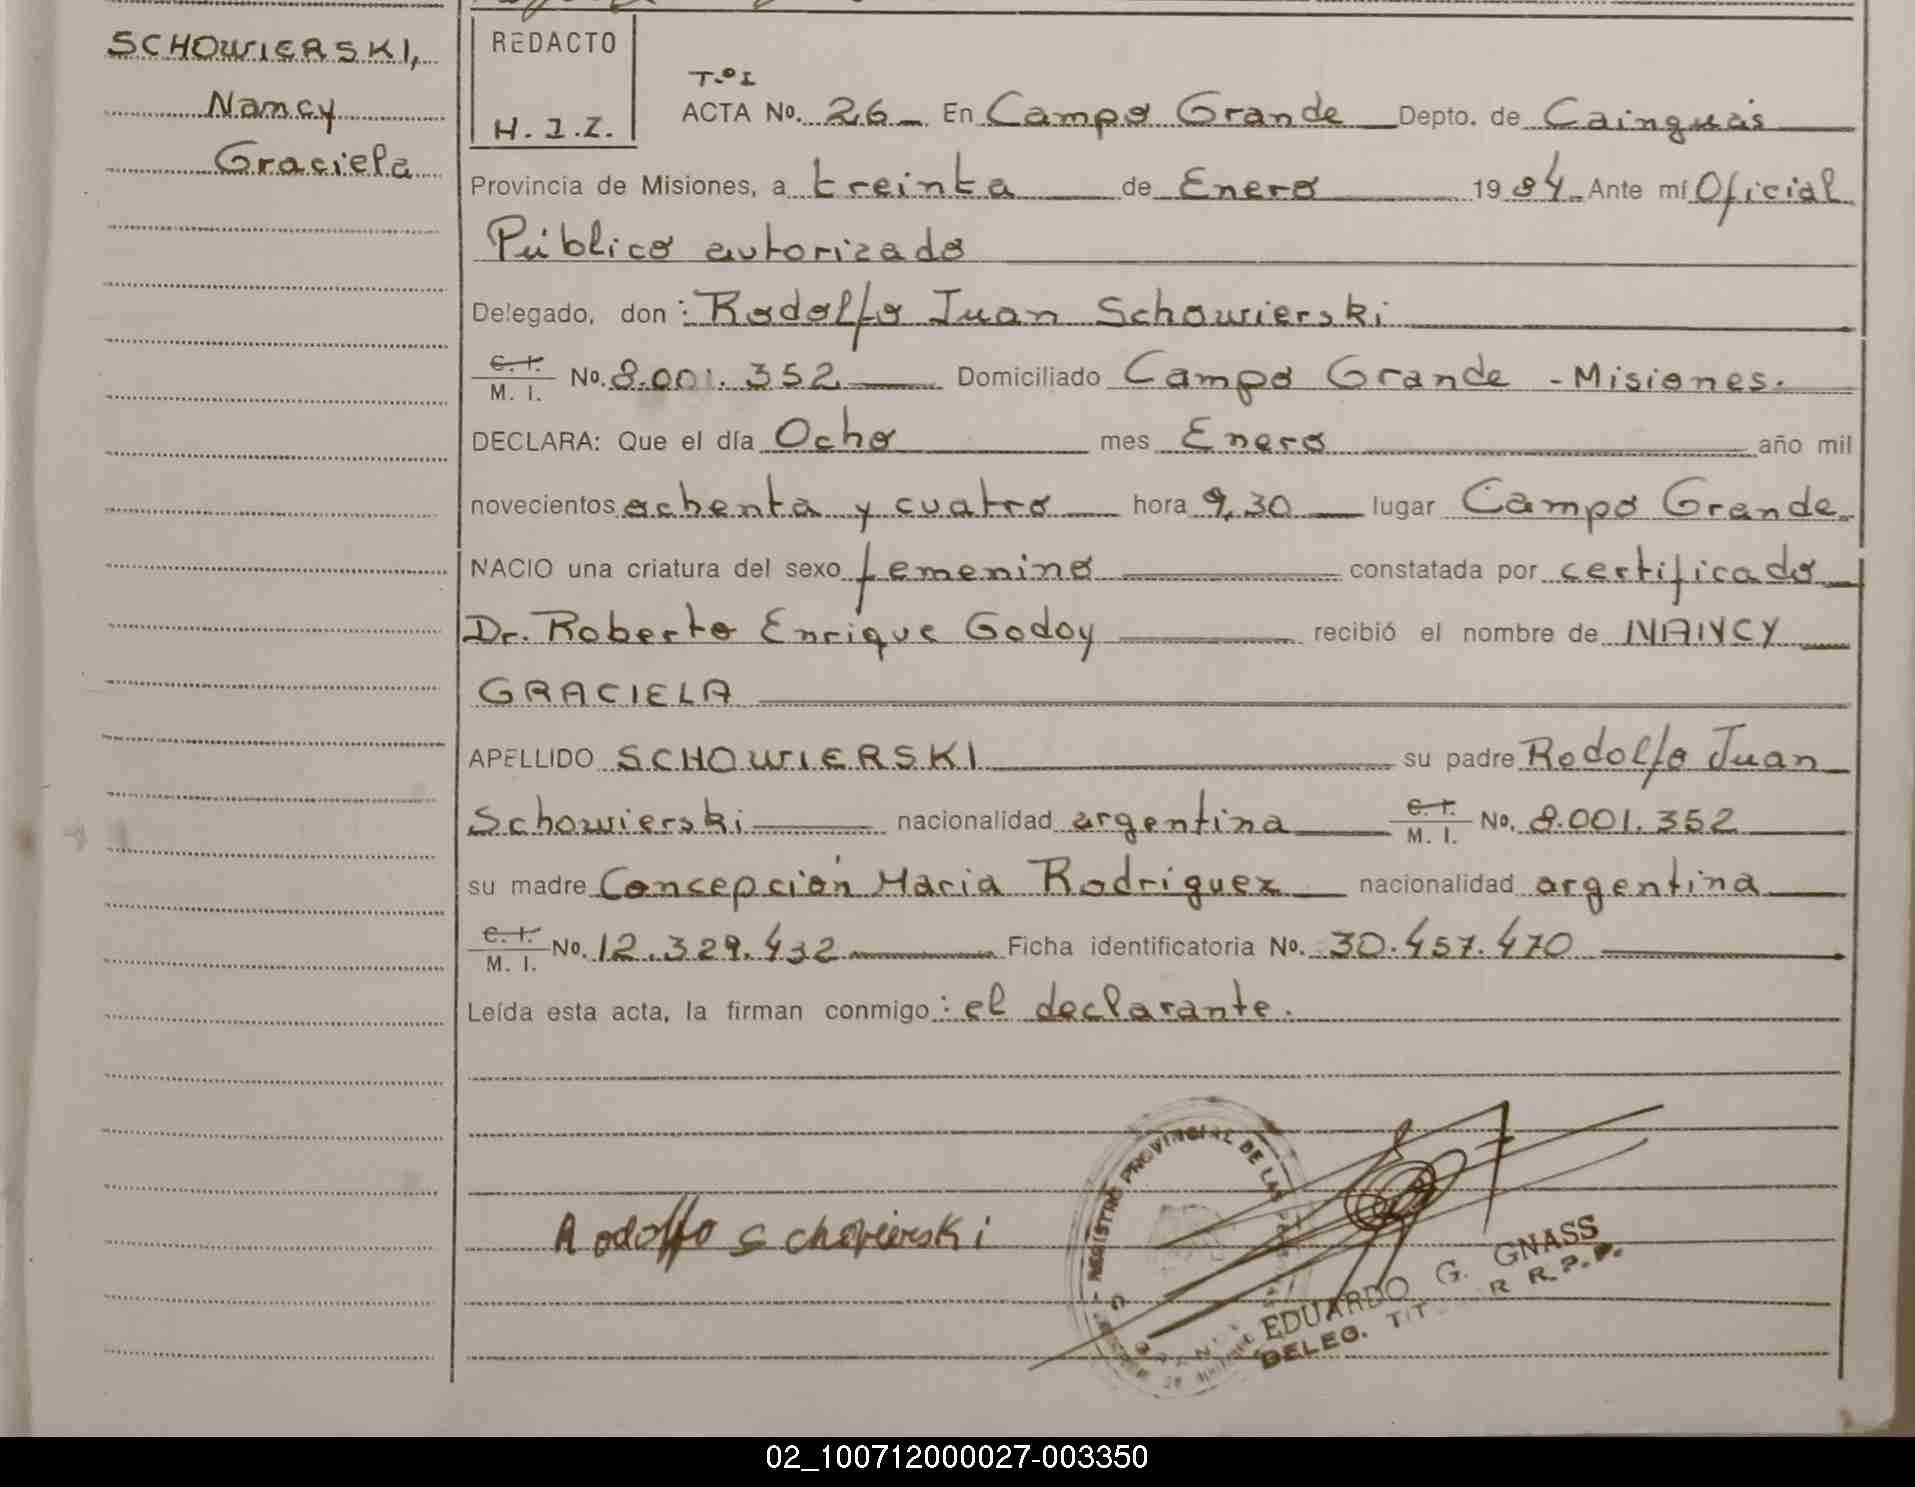 SCHOWIERSKI,
Nancy
Graciela
REDACTO
H. I. Z.
T.º I
ACTA No. 26 En Campo Grande Depto. de Cainguás
Provincia de Misiones, a treinta de Enero 1984. Ante mí Oficial
Público autorizado
Delegado, don : Rodolfo Juan Schowierski
C. I. / M. I. No. 8.001.352 Domiciliado Campo Grande - Misiones.
DECLARA: Que el día Ocho mes Enero año mil
novecientos ochenta y cuatro hora 9,30 lugar Campo Grande.
NACIO una criatura del sexo femenino constatada por certificado
Dr. Roberto Enrique Godoy recibió el nombre de NANCY
GRACIELA
APELLIDO SCHOWIERSKI su padre Rodolfo Juan
Schowierski nacionalidad argentina C. I. / M. I. No. 8.001.352
su madre Concepción Maria Rodriguez nacionalidad argentina
C. I. / M. I. No. 12.329.432 Ficha identificatoria No. 30.457.470
Leída esta acta, la firman conmigo : el declarante.
REGISTRO PROVINCIAL DE LAS
Rodolfo Schowierski
EDUARDO G. GNASS
DELEG. TIT R R.P.P.
02_100712000027-003350